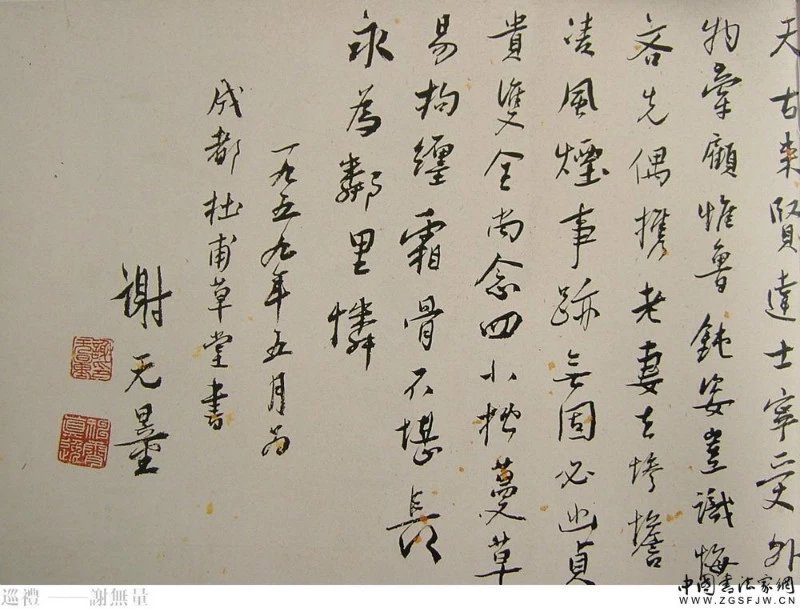 天古來賢達士寧受外
物牽顧惟魯鈍姿豈識悔
吝先偶攜老妻去慘憺
凌風煙事跡無固必幽貞
貴雙全尚念四小松蔓草
易拘纏霜骨不堪長
永為鄰里憐
一九五九年五月為
成都杜甫草堂書
謝无量
巡禮 ——謝無量
中國書法家網
WWW.ZGSFJW.CN